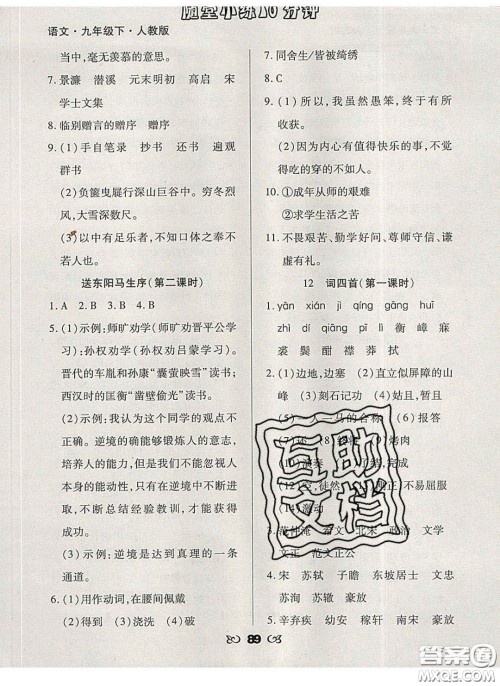 随堂小练10分钟
语文·九年级下·人教版
当中,毫无羡慕的意思。
7. 景濂 潜溪 元末明初 高启 宋
学士文集
8. 临别赠言的赠序 赠序
9. (1)手自笔录 抄书 还书 遍观
群书
(2)负箧曳屣行深山巨谷中。穷冬烈
风,大雪深数尺。
(3)以中有足乐者,不知口体之奉不
若人也。
送东阳马生序(第二课时)
1. A 2. B 3. B 4. B
5. (1)示例:师旷劝学(师旷劝晋平公学
习);孙权劝学(孙权劝吕蒙学习)。
晋代的车胤和孙康“囊萤映雪”读书;
西汉时的匡衡“凿壁偷光”读书。
(2)示例:我认为这个同学的观点不
正确。逆境的确能够锻炼人的意志,
培养人的能力,但是我们不能忽视人
本身的能动性,只有在逆境中不断进
取,不断总结经验教训,才能获得
成功。
(3)示例:逆境是达到真理的一条
通道。
6. (1)用作动词,在腰间佩戴
(2)得到 (3)浇洗 (4)破
7. 同舍生/皆被绮绣
8. C
9. (1)所以,我虽然愚笨,终于有所
收获。
(2)因为内心有值得快乐的事,不觉
得吃的穿的不如人。
10. ①成年从师的艰难
②求学生活之苦
11. 不畏艰苦、勤学好问、尊师守信、谦
恭有礼等。
12 词四首(第一课时)
1. yān xián jì qíng gāng huī
zhù dí qiāng lì piī 衡 嶂 麻
裘 鬓 酣 襟 莽 拭
2. (1)边地,边塞 (2)直立似屏障的山
峰 (3)刻石记功 (4)姑且,暂且
(5) (6)报答
(7)还 (9)烤肉
(10)演奏 完成
(12)空,徒然 不易屈服
(14)激动
3. 范仲淹 希文 北宋 政治 文学
文正 范文正公
4. 宋 苏轼 子瞻 东坡居士 文忠
苏洵 苏辙 豪放
5. 辛弃疾 幼安 稼轩 南宋 豪放
89
互助
文档
答案圈
MXQE.COM